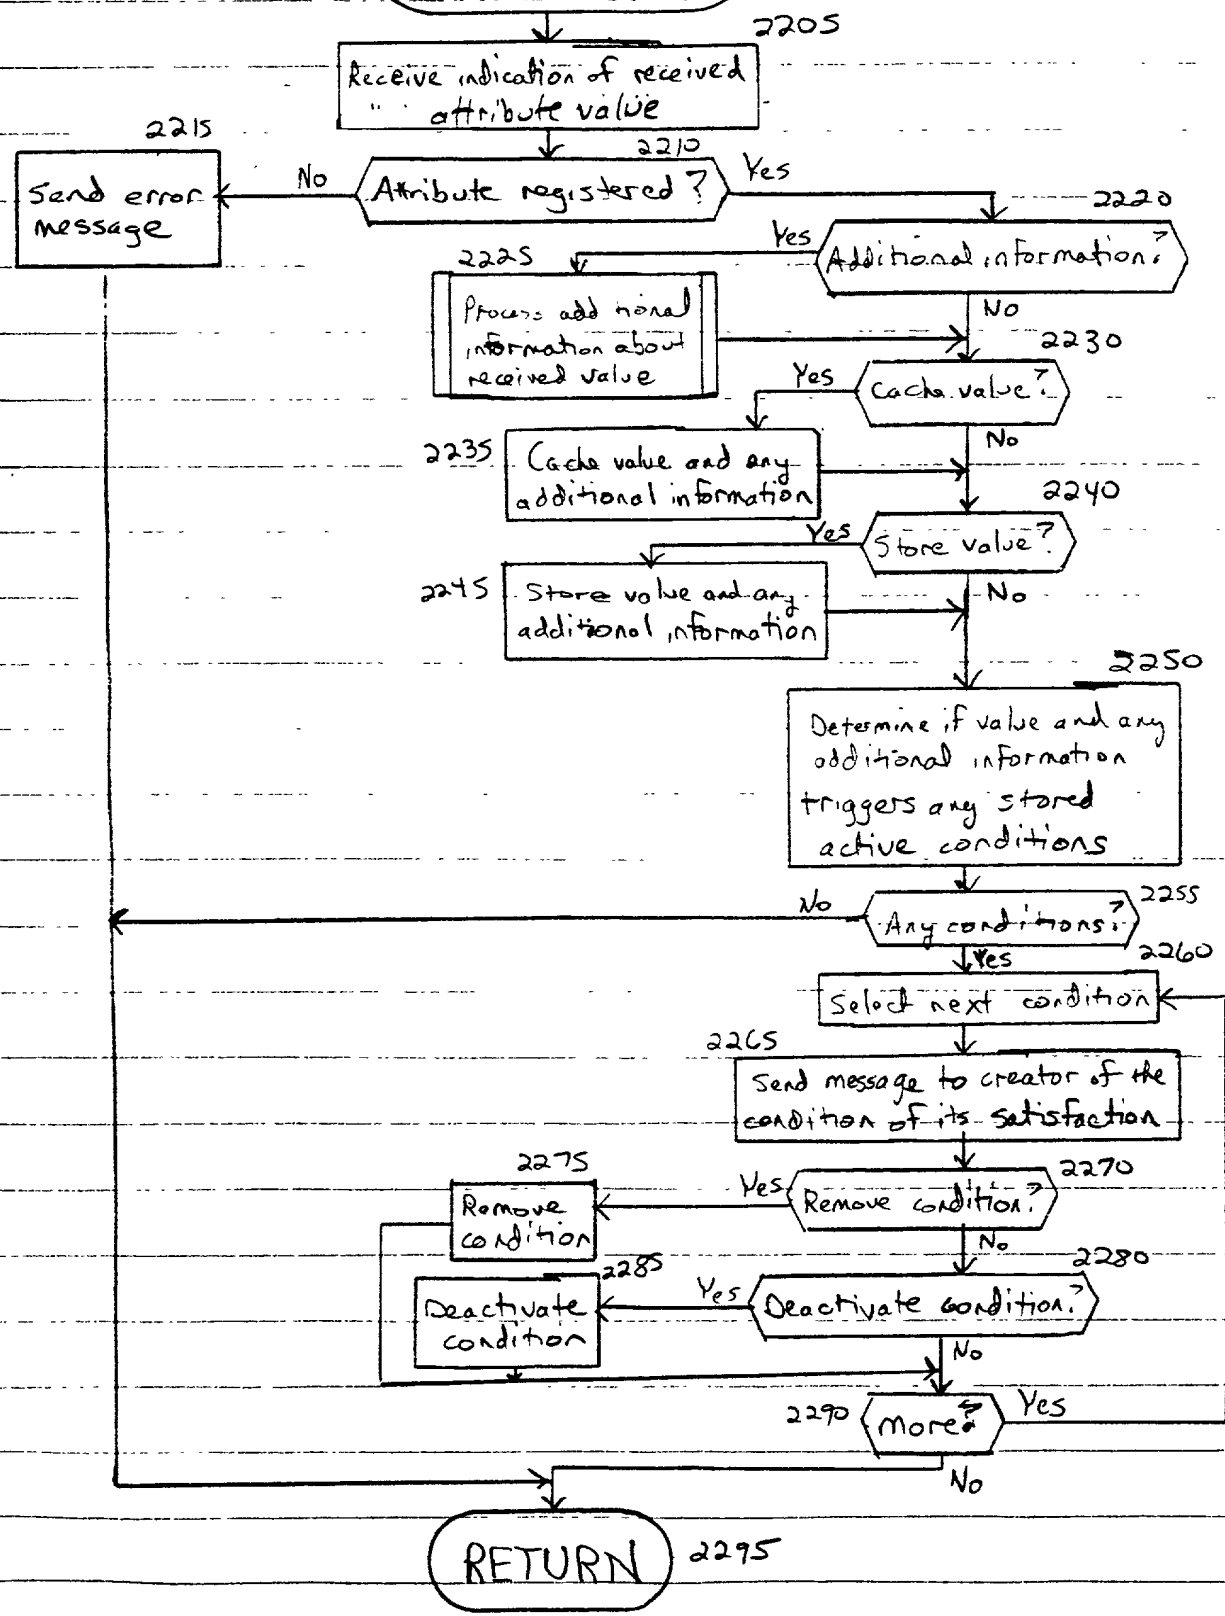 2205
Receive indication of received
attribute value
2215
2210
Send error
message
No
Attribute registered?
Yes
2220
Yes
Additional information?
2225
Process additional
information about
received value
No
2230
Yes
Cache value?
No
2235
Cache value and any
additional information
2240
Yes
Store value?
No
2245
Store value and any
additional information
2250
Determine if value and any
additional information
triggers any stored
active conditions
No
Any conditions?
2255
Yes
2260
Select next condition
2265
Send message to creator of the
condition of its satisfaction
2275
2270
Remove
condition
Yes
Remove condition?
No
2285
2280
Deactivate
condition
Yes
Deactivate condition?
No
2290
More?
Yes
No
RETURN
2295